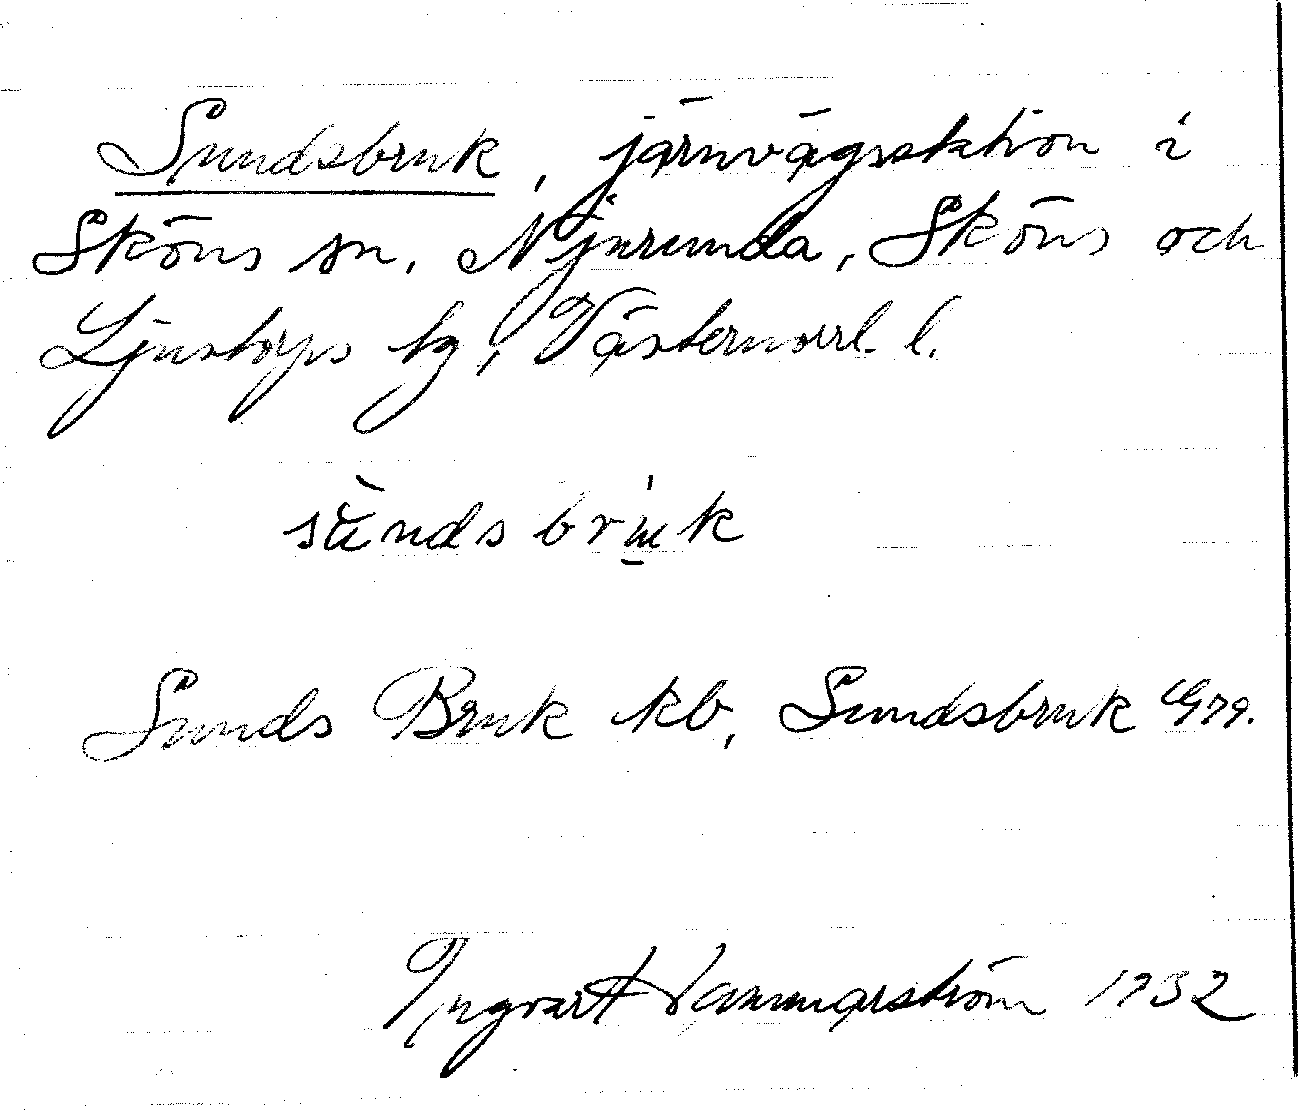 Sundsbruk, järnvägsstation i
Sköns sn, Njurunda, Sköns och
Ljustorps tg, Västernorrl. l.
sùndsbrúk
Sunds Bruk kb, Sundsbruk G79.
Ingvar Hammarström 1932